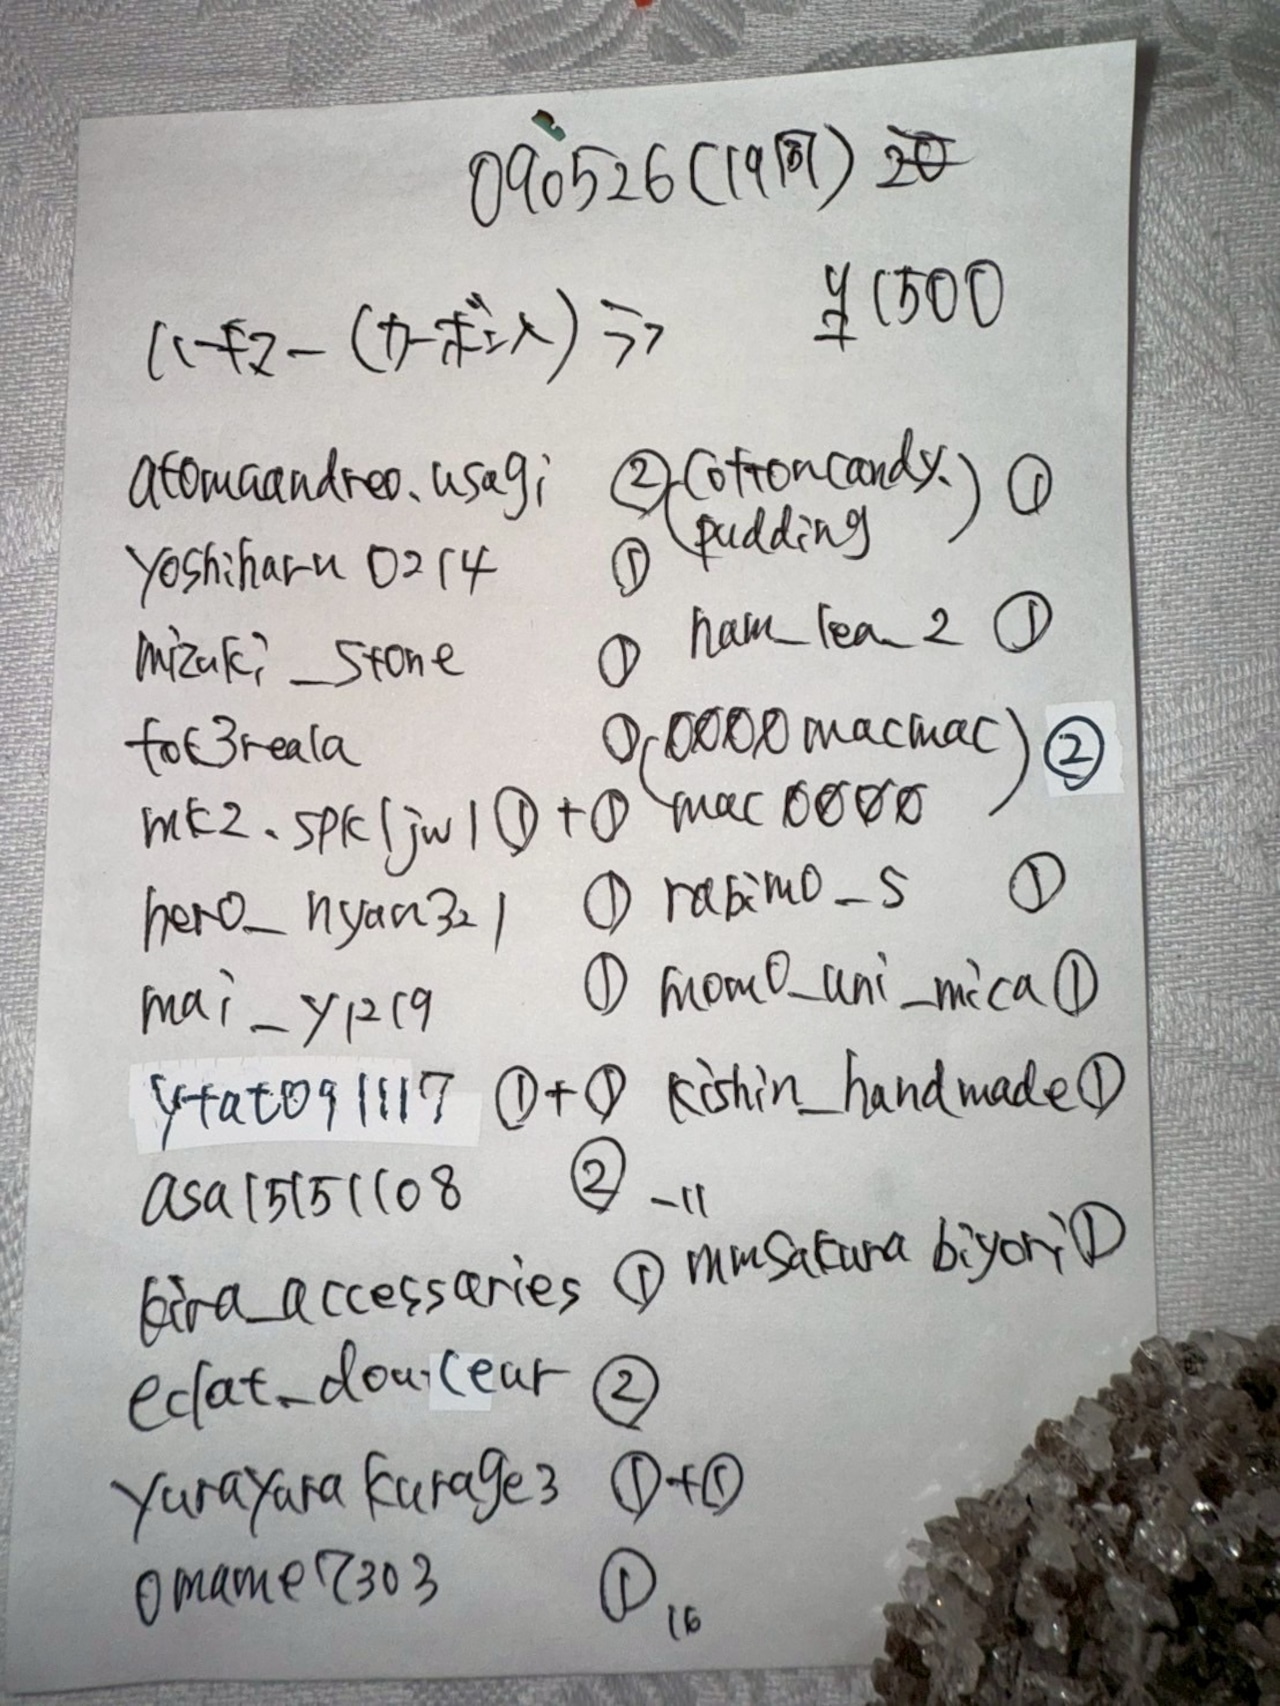 090526(19時) 20
ハーキマー(カーボン入)ララ
¥1500
atomaandreo.usagi ②
yoshiharu0214 ①
mizuki_stone ①
tok3reala ①
mk2.spkljw1 ①+①
hero_nyan321 ①
mai_y1219 ①
ytat091117 ①+①
asa15151108 ②
kira_accessaries ①
eclat_douceur ②
yurayurakurage3 ①+①
omame7303 ①
16
(cottoncandy.
pudding) ①
nam_lea_2 ①
(0000macmac
mac0000) ②
rabimo_s ①
momo_uni_mica ①
kishin_handmade ①
-11
mmsakura biyori ①